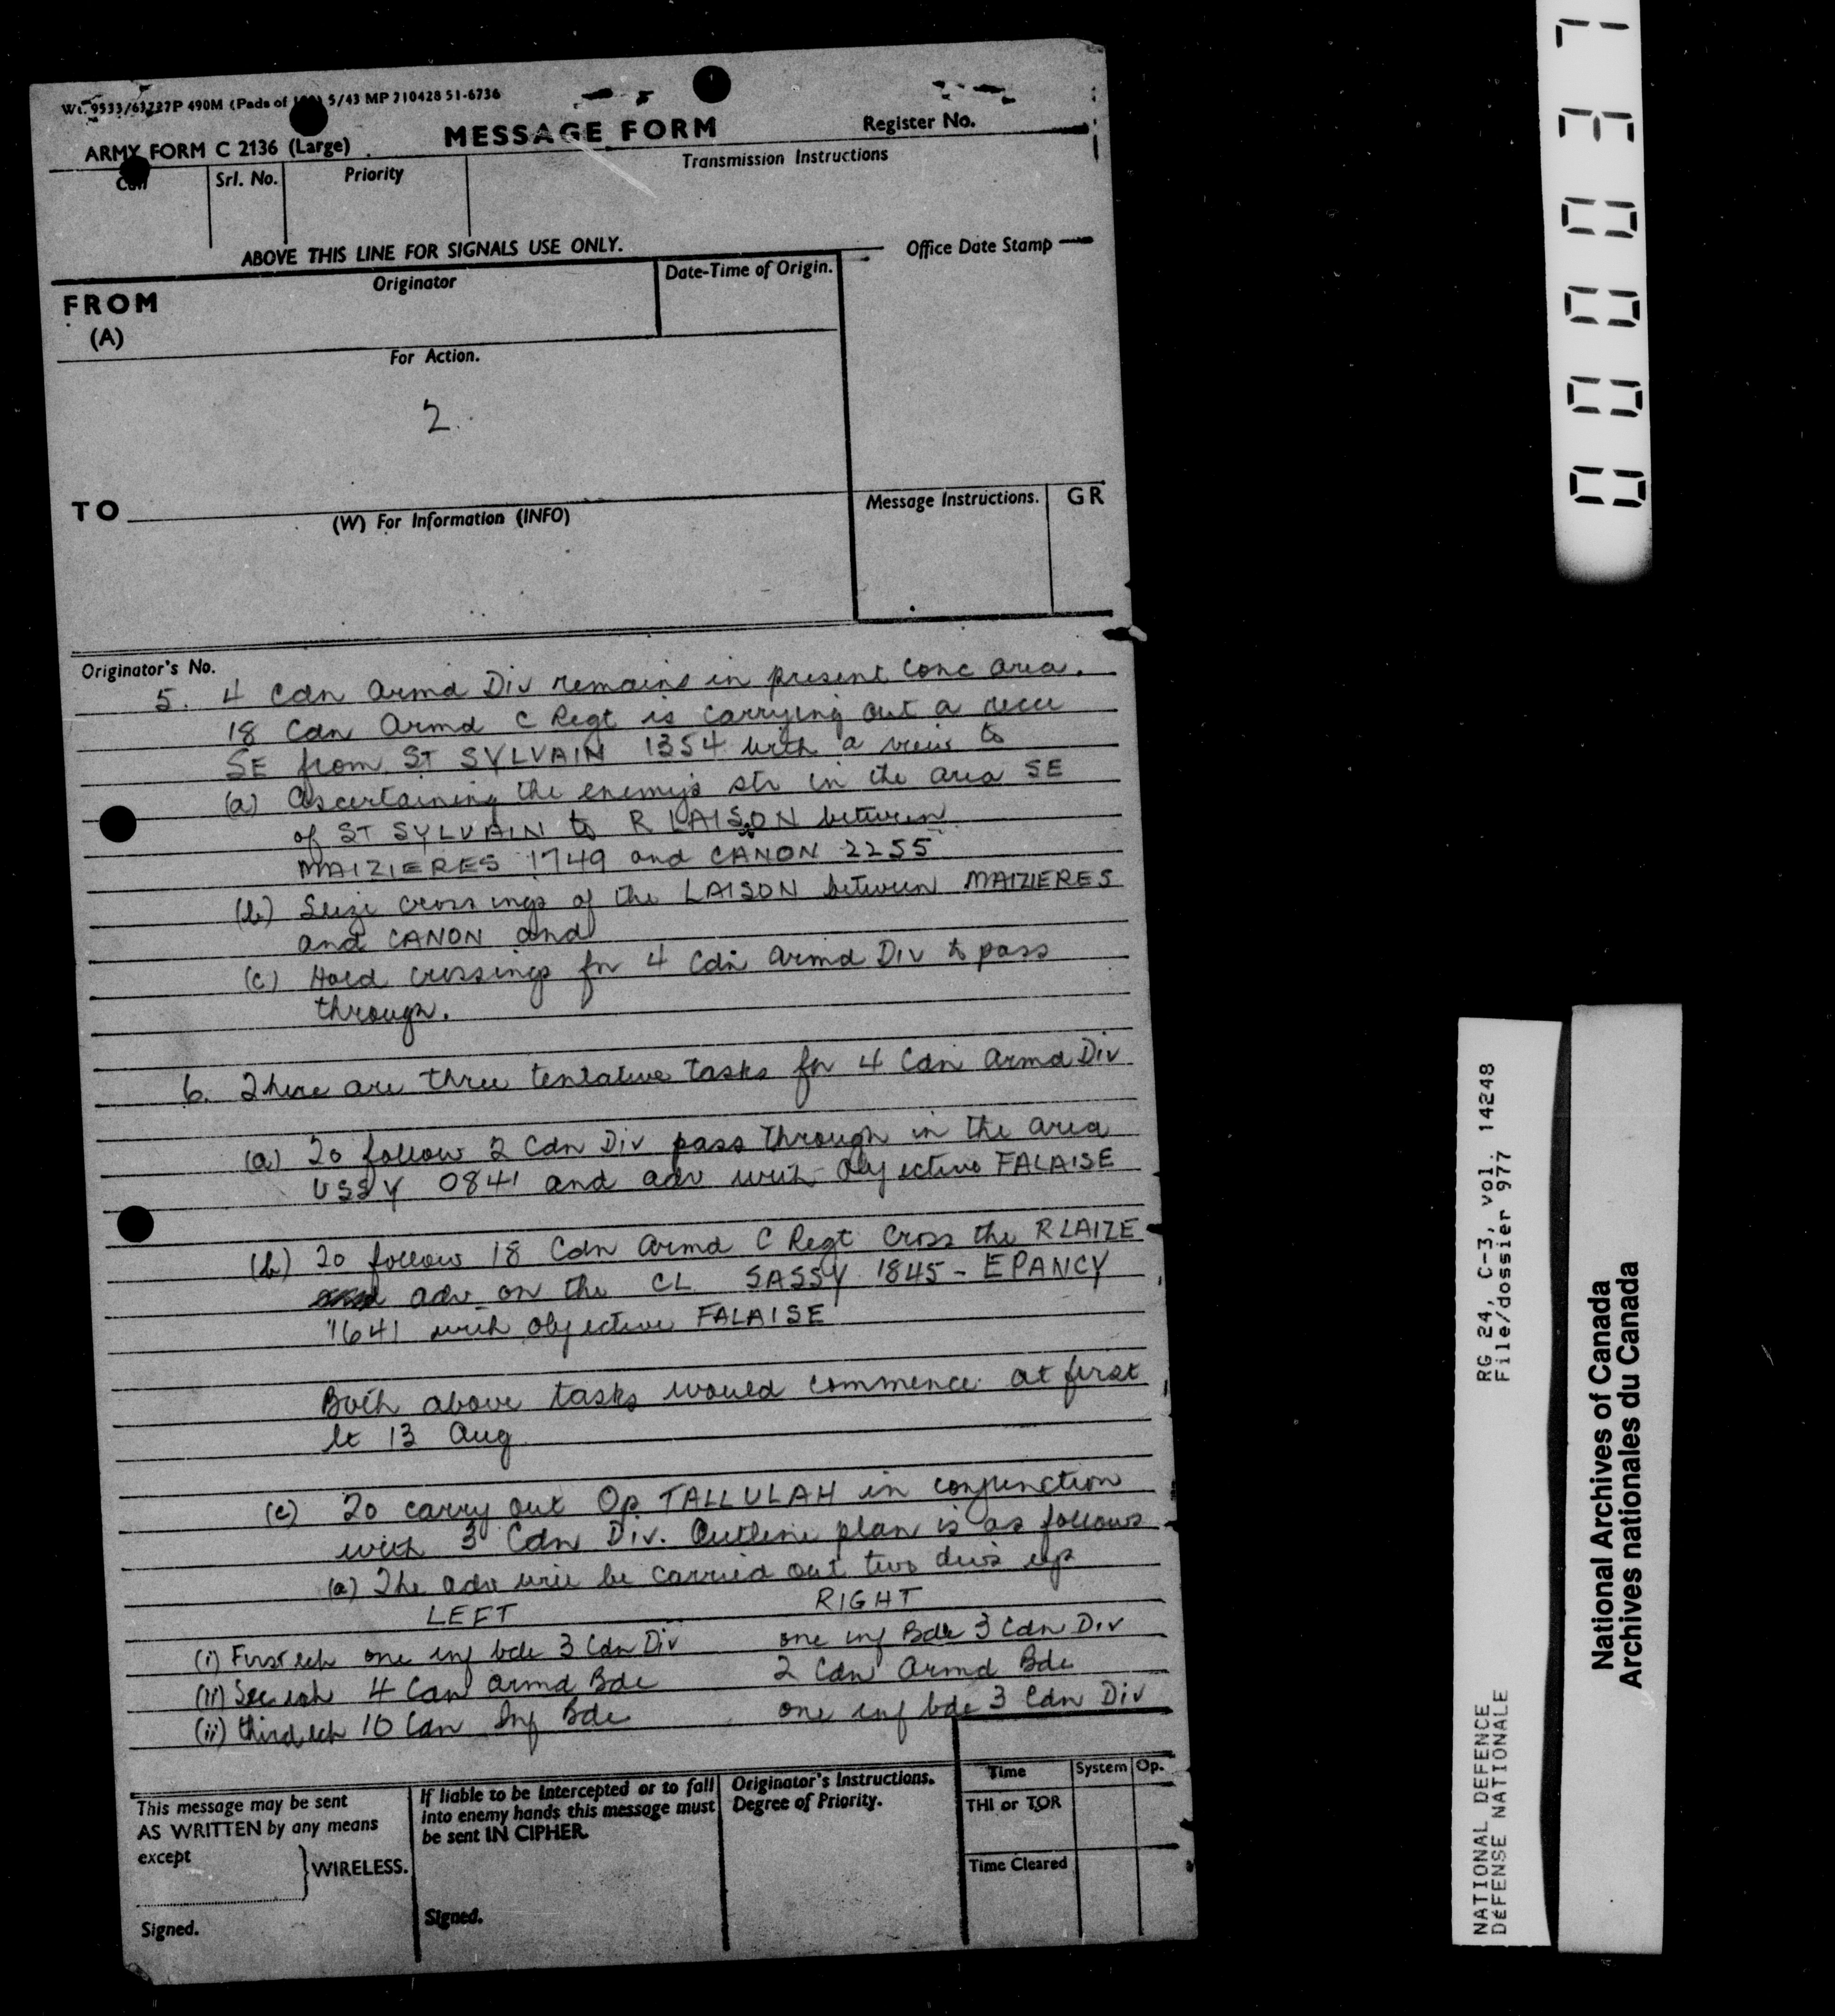 Wt. 9533/63727P 490M (Pads of 100) 5/43 MP 710428 51-6736
ARMY FORM C 2136 (Large)
MESSAGE FORM
Register No.
Call
Srl. No.
Priority
Transmission Instructions
ABOVE THIS LINE FOR SIGNALS USE ONLY.
Office Date Stamp
FROM
(A)
Originator
Date-Time of Origin.
For Action.
2.
TO
(W) For Information (INFO)
Message Instructions.
GR
Originator's No.
5. 4 Cdn Armd Div remains in present Conc area.
18 Cdn Armd C Regt is carrying out a recce
SE from ST SYLVAIN 1354 with a view to
(a) Ascertaining the enemy's str in the area SE
of ST SYLVAIN to R LAISON between
MAIZIERES 1749 and CANON 2255
(b) Seize crossings of the LAISON between MAIZIERES
and CANON and
(c) Hold crossings for 4 Cdn Armd Div to pass
through.
6. There are three tentative tasks for 4 Cdn Armd Div
(a) To follow 2 Cdn Div pass through in the area
USSY 0841 and adv with objective FALAISE
(b) To follow 18 Cdn Armd C Regt Cross the R LAIZE
adv on the CL SASSY 1845 - EPANCY
1641 with objective FALAISE
Both above tasks would commence at first
lt 13 Aug
(c) To carry out Op TALLULAH in conjunction
with 3 Cdn Div. Outline plan is as follows
(a) The adv will be carried out two divs up
LEFT RIGHT
(i) First ech one inf bde 3 Cdn Div one inf Bde 3 Cdn Div
(ii) Sec ech 4 Cdn Armd Bde 2 Cdn Armd Bde
(ii) third ech 10 Cdn Inf Bde one inf bde 3 Cdn Div
This message may be sent
AS WRITTEN by any means
except
WIRELESS.
Signed.
If liable to be intercepted or to fall
into enemy hands this message must
be sent IN CIPHER.
Signed.
Originator's Instructions.
Degree of Priority.
Time
System
Op.
THI or TOR
Time Cleared
000037
RG 24, C-3, vol. 14248
File/dossier 977
NATIONAL DEFENCE
DÉFENSE NATIONALE
National Archives of Canada
Archives nationales du Canada